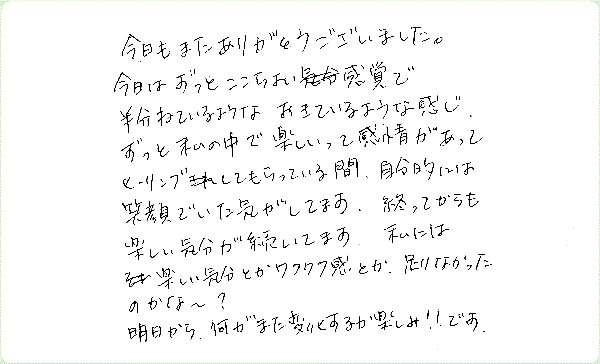 今日もまたありがとうございました。
今日はずっとここちよい感覚で
半分ねているような おきているような感じ、
ずっと私の中で楽しいって感情があって
ヒーリングしてもらっている間、自分的には
笑顔でいた気がしてます、終ってからも
楽しい気分が続いてます、私には
楽しい気分とかワクワク感とか、足りなかった
のかな～?
明日から、何がまた変化するか楽しみ!!です。